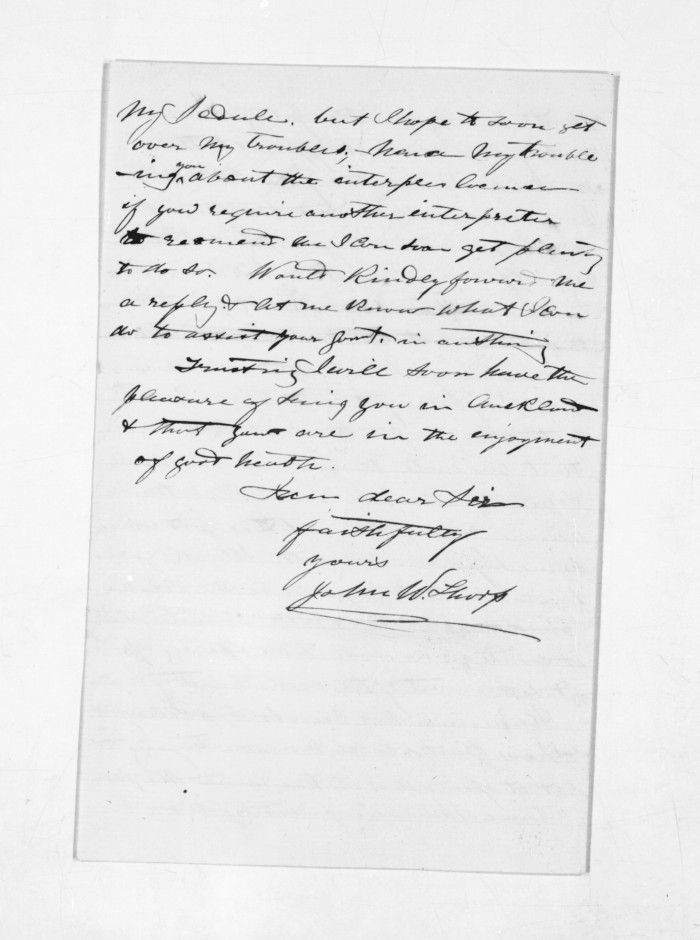 My Schedule. but I hope to soon get
over my troubles; hence my trouble
-ing you about the interpters license
if you require another interpreter
to recomend me I can soon get plenty
to do so. Would Kindly forward me
a reply & let me know what I can
do to assist your Govt. in anything
Trusting I will soon have the
pleasure of seing you in Auckland
& that you are in the enjoyment
of good heath.
I am dear Sir
faithfully
yours
John W. Thorp